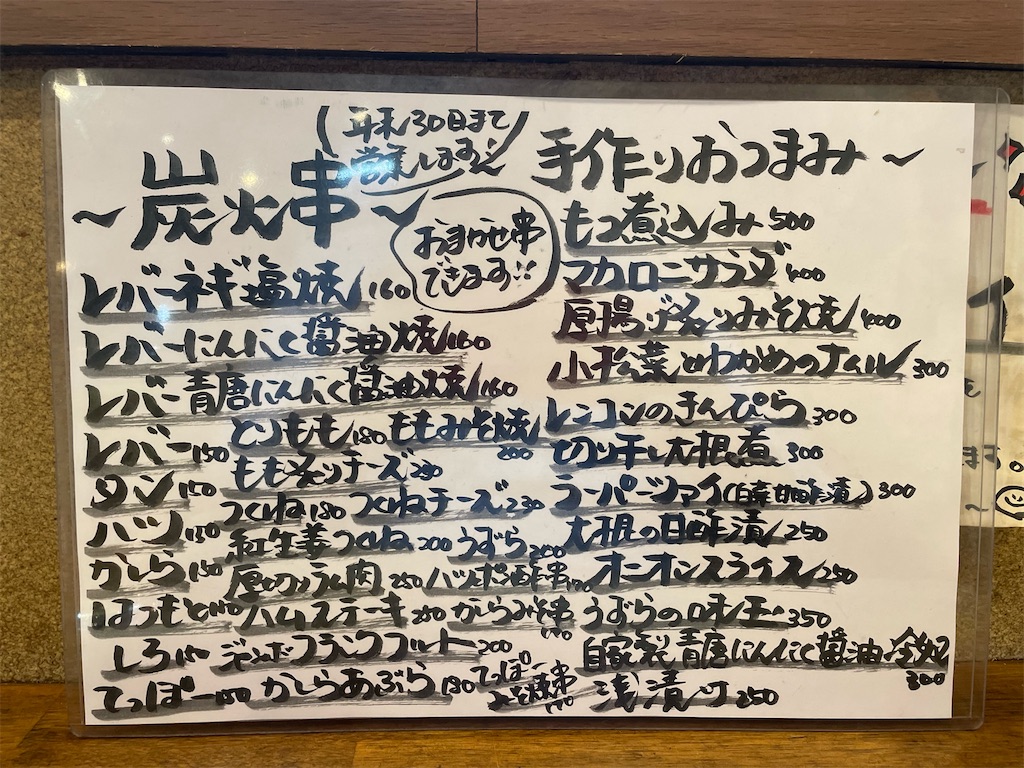 (年末30日まで
営業します!!)
〜炭火串〜
おまかせ串
できます!!
レバーネギ塩焼 160
レバーにんにく醤油焼 160
レバー青唐にんにく醤油焼 160
レバー 150
とりもも 180 ももみそ焼 200
タン 150
もも チーズ
ハツ 150
つくね 180 つくねチーズ 230
かしら 150
紅生姜つくね 200 うずら 200
はつもと
厚切り 肉 250 ハツ ポン酢串
ハムステーキ からみそ串
しろ
フランクフルト 200
てっぽー かしらあぶら 180 てっぽー
みそ焼串
手作りおつまみ〜
もつ煮込み 500
マカロニサラダ 400
厚揚げ みそ焼 400
小松菜とわかめのナムル 300
レンコンのきんぴら 300
切り干し大根煮 300
ラーパーツァイ(白菜甘酢漬) 300
大根の甘酢漬 250
オニオンスライス 250
うずらの味玉 350
自家製青唐にんにく醤油
300
浅漬け 250
ます。